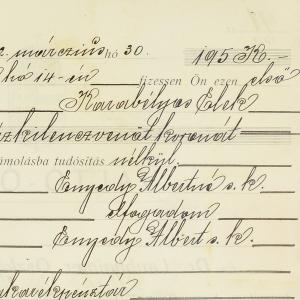 2. márczius hó 30. 195 K.-
hó 14-én fizessen Ön ezen első
Karabélyos Elek
ázkilenczvenöt koronát
ámolásba tudósítás nélkül.
Enyedy Albertné s. k.
elfogadom
Enyedy Albert s. k.
akarékpénztár